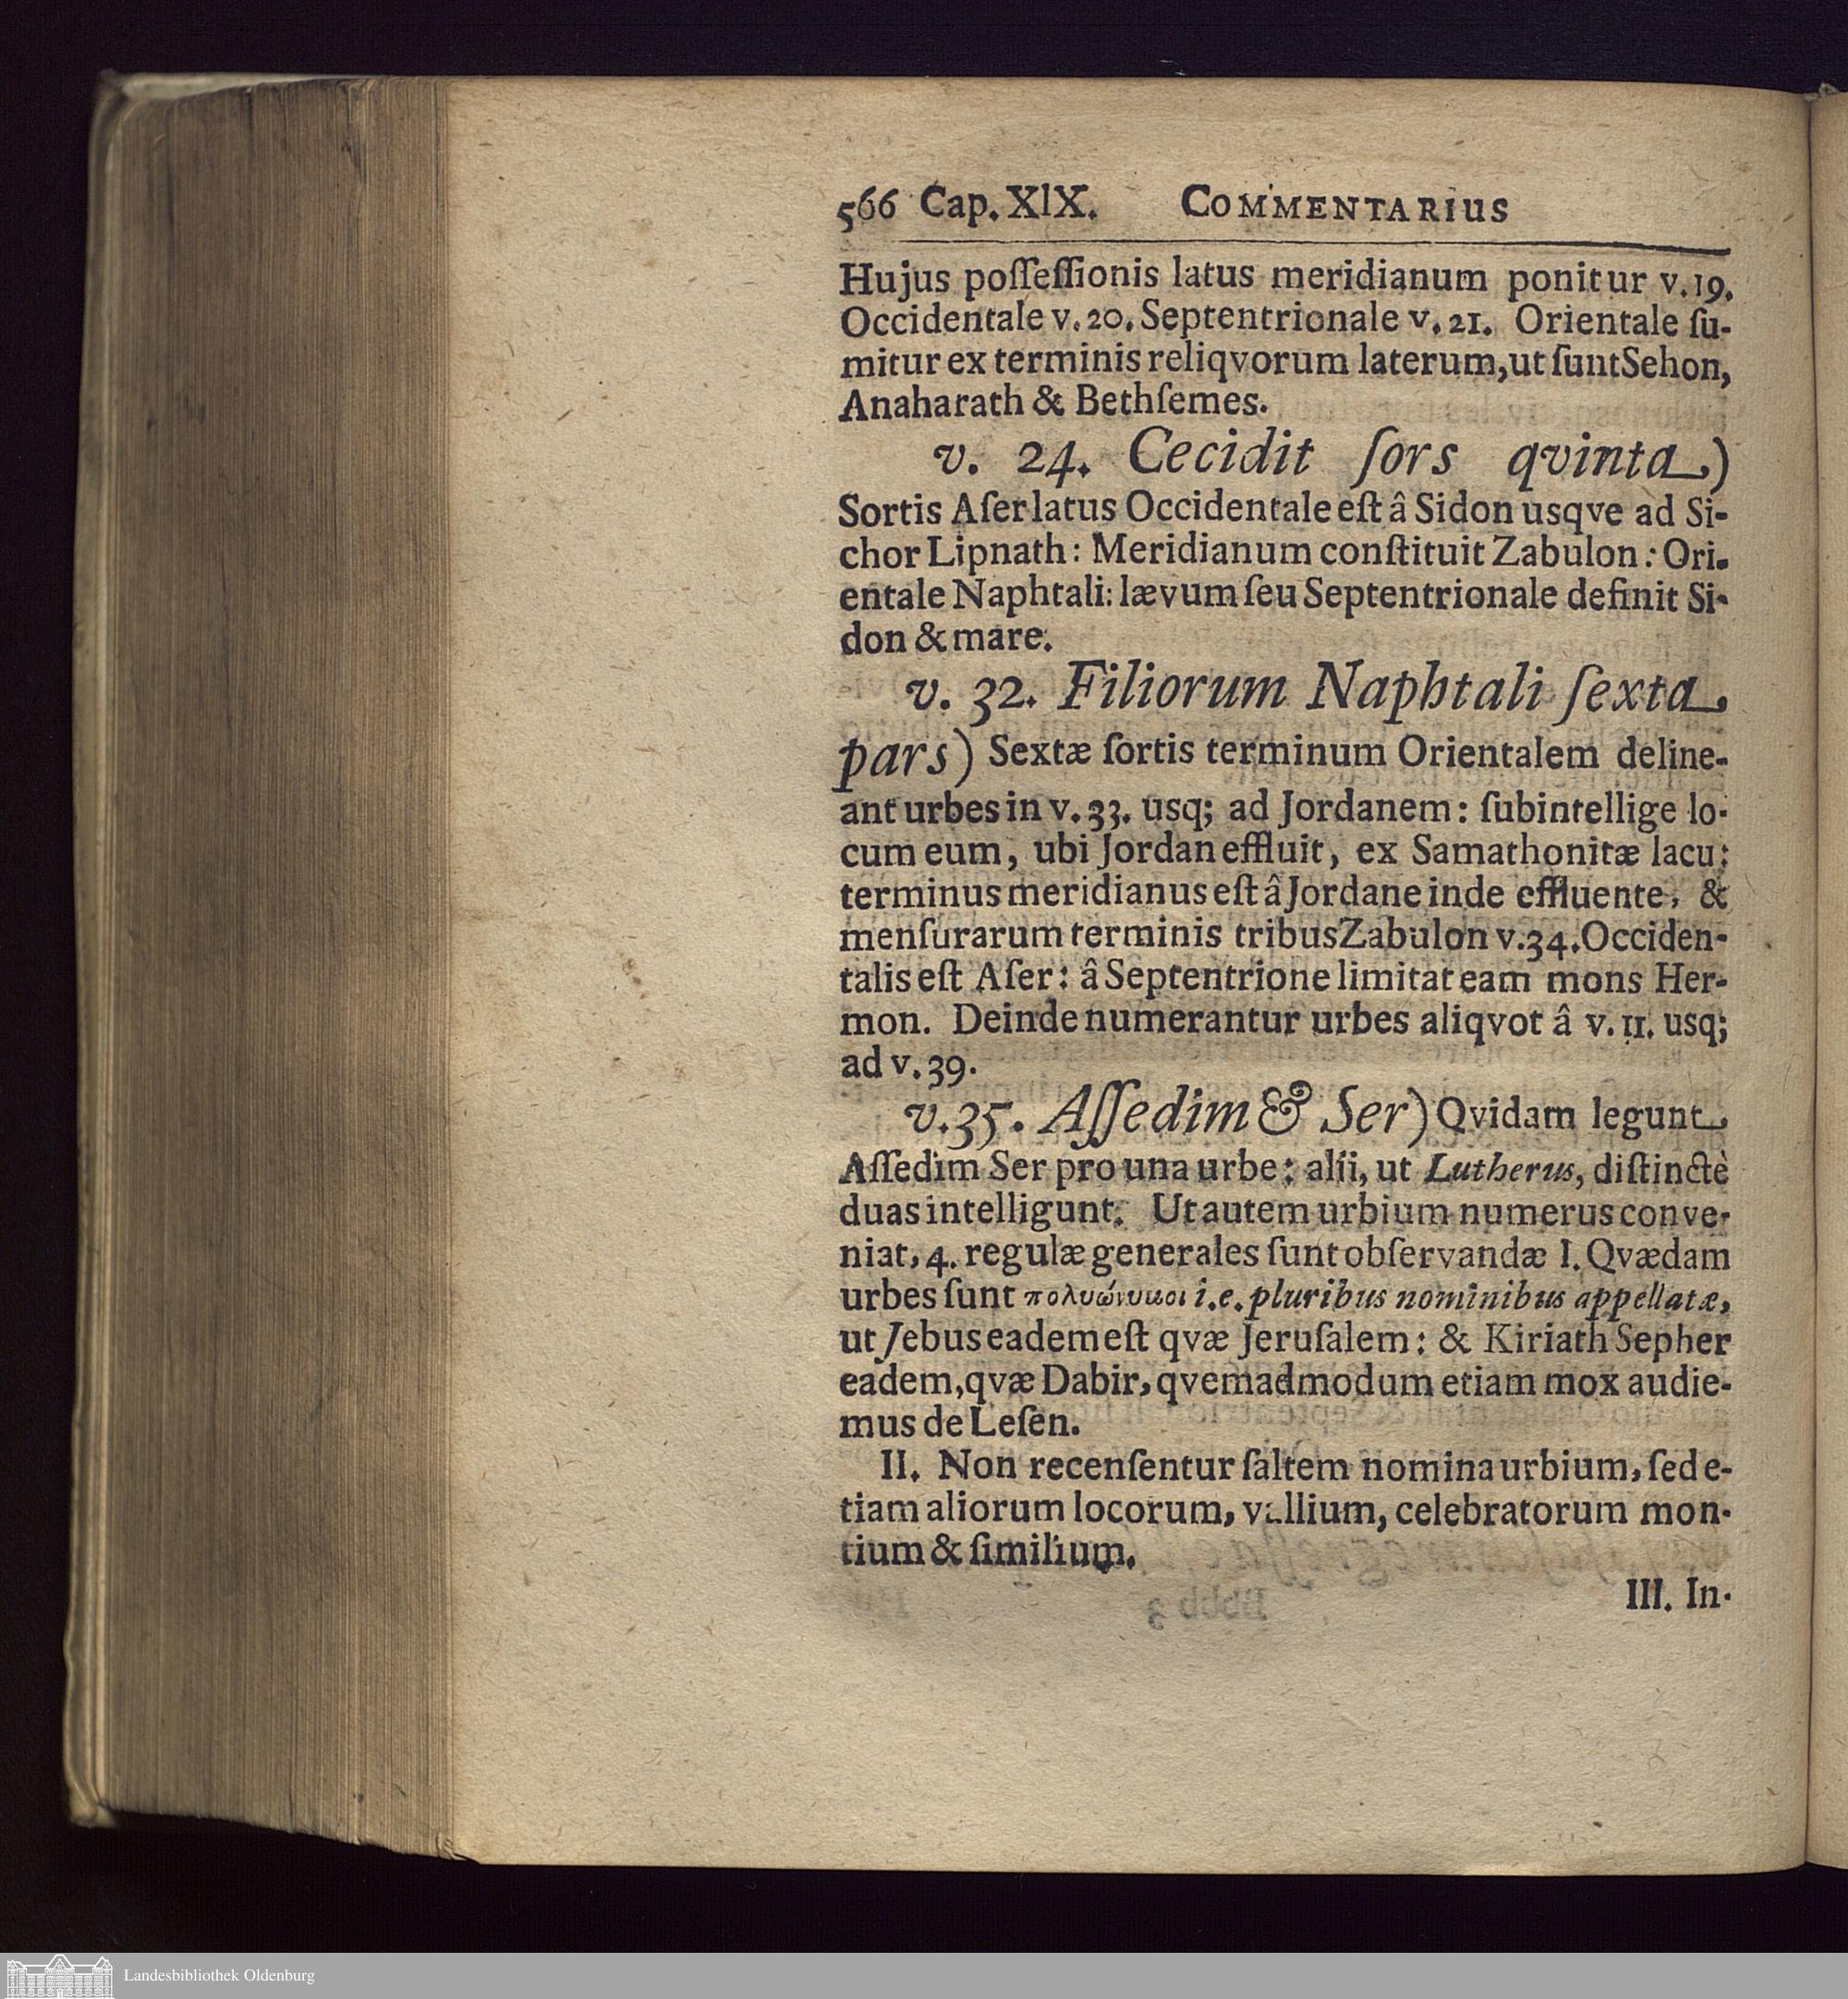 566 Cap. XIX. COMMENTARIUS
Hujus poſſeſſionis latus meridianum ponitur v. 19.
Occidentale v. 20. Septentrionale v. 21. Orientale ſu-
mitur ex terminis reliqvorum laterum, ut ſunt Sehon,
Anaharath & Bethſemes.
v. 24. Cecidit ſors qvinta)
Sortis Aſer latus Occidentale eſt â Sidon usqve ad Si-
chor Lipnath: Meridianum conſtituit Zabulon: Ori-
entale Naphtali: lævum ſeu Septentrionale definit Si-
don & mare.
v. 32. Filiorum Naphtali ſexta
pars) Sextæ ſortis terminum Orientalem deline-
ant urbes in v. 33. usq; ad Jordanem: ſubintellige lo-
cum eum, ubi Jordan effluit, ex Samathonitæ lacu:
terminus meridianus eſt â Jordane inde effluente, &
menſurarum terminis tribus Zabulon v. 34. Occiden-
talis eſt Aſer: â Septentrione limitat eam mons Her-
mon. Deinde numerantur urbes aliqvot â v. 11. usq;
ad v. 39.
v. 35. Aſſedim & Ser) Qvidam legunt
Aſſedim Ser pro una urbe: alii, ut Lutherus, diſtinctè
duas intelligunt. Ut autem urbium numerus conve-
niat, 4. regulæ generales ſunt obſervandæ I. Qvædam
urbes ſunt πολυώνυμοι i. e. pluribus nominibus appellatæ,
ut Jebus eadem eſt qvæ Jeruſalem: & Kiriath Sepher
eadem, qvæ Dabir, qvemadmodum etiam mox audie-
mus de Leſen.
II. Non recenſentur ſaltem nomina urbium, ſed e-
tiam aliorum locorum, vallium, celebratorum mon-
tium & ſimilium.
III. In-
Landesbibliothek Oldenburg